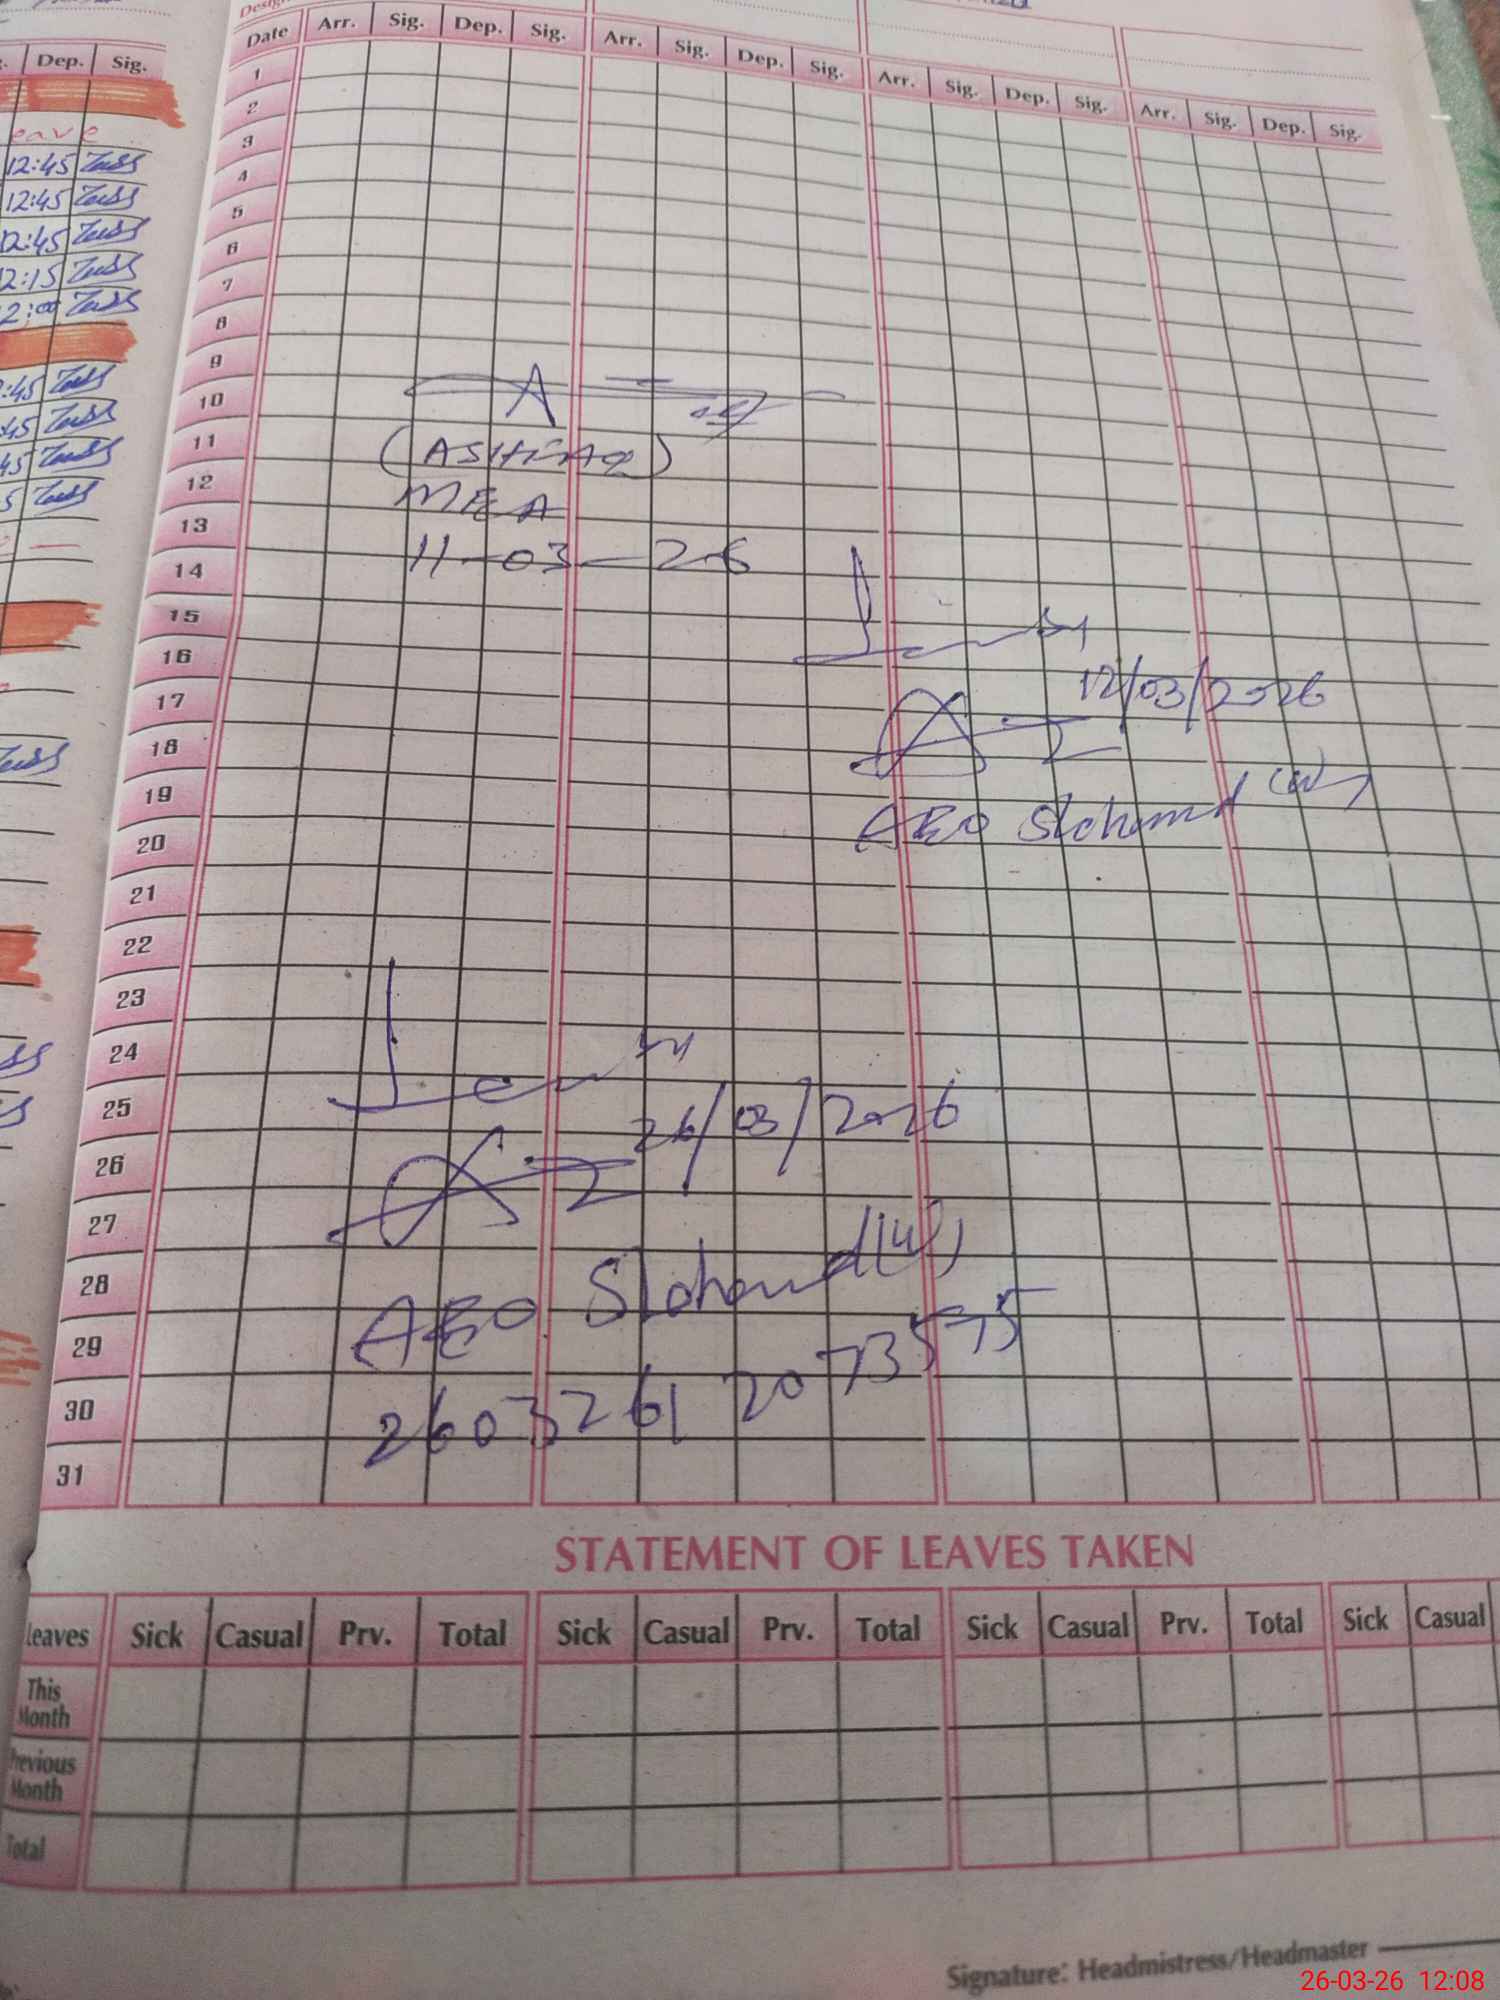 Dep. Sig.
eave
12:45
12:45
12:45
12:15
12:00
:45
:45
45
5
Date Arr. Sig. Dep. Sig. Arr. Sig. Dep. Sig. Arr. Sig. Dep. Sig. Arr. Sig. Dep. Sig.
1
2
3
4
5
6
7
8
9
10
11
12
13
14
15
16
17
18
19
20
21
22
23
24
25
26
27
28
29
30
31
(ASHFAQ)
MEA
11-03-26
12/03/2026
AEO (W)
26/03/2026
AEO (W)
STATEMENT OF LEAVES TAKEN
Leaves Sick Casual Prv. Total Sick Casual Prv. Total Sick Casual Prv. Total Sick Casual
This Month
Previous Month
Total
Signature: Headmistress/Headmaster
26-03-26 12:08